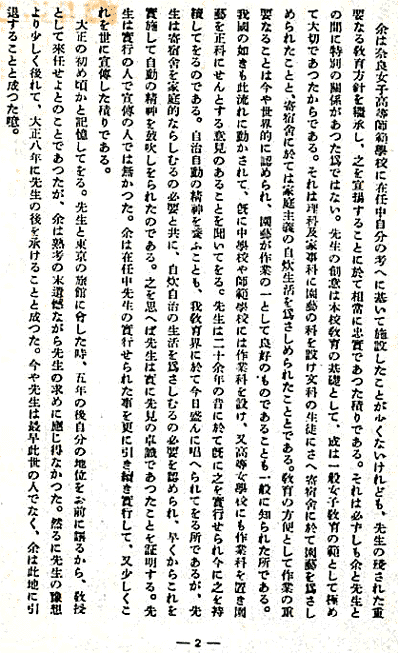 余は奈良女子高等師範學校に在任中自分の考へに基いて施設したことが少くないけれども、先生の殘された重
要なる敎育方針を繼承し、之を宣揚することに於て相當に忠實であつた積りである。それは必ずしも余と先生と
の間に特別の關係があつた爲ではない。先生の創意は本校敎育の基礎として、或は一般女子敎育の範として極め
て大切であつたからである。それは理科及家事科に園藝の科を設け文科の生徒にさへ寄宿舍に於て園藝を爲さし
められたことと、寄宿舍に於ては家庭主義の自炊生活を爲さしめられたこととである。敎育の方便として作業の重
要なることは今や世界的に認められ、園藝が作業の一として良好のものであることも一般に知られた所である。
我國の如きも此流れに動かされて、旣に中學校や師範學校には作業科を設け、又高等女學校にも作業科を置き園
藝を正科にせんとする意見のあることを聞いてをる。先生は二十余年の昔に於て旣に之を實行せられ今に之を持
續してをるのである。自治自動の精神を養ふことも、我敎育界に於て今日盛んに唱へられてをる所であるが、先
生は寄宿舍を家庭的ならしむるの必要と共に、自炊自治の生活を爲さしむるの必要を認められ、早くからこれを
實施して自動の精神を鼓吹しをられたのである。之を思へば先生は實に先見の卓識であつたことを証明する。先
生は實行の人で宣傳の人では無かつた。余は在任中先生の實行せられた事を更に引き續き實行して、又少しくこ
れを世に宣傳した積りである。
大正の初め頃かと記憶してをる。先生と東京の旅館に會した時、五年の後自分の地位をお前に讓るから、敎授
として來任せよとのことであつたが、余は熟考の末遺憾ながら先生の求めに應じ得なかつた。然るに先生の豫想
より少しく後れて、大正八年に先生の後を承けることと成つた。今や先生は最早此世の人でなく、余は此地に引
退することと成つた噫。
— 2 —